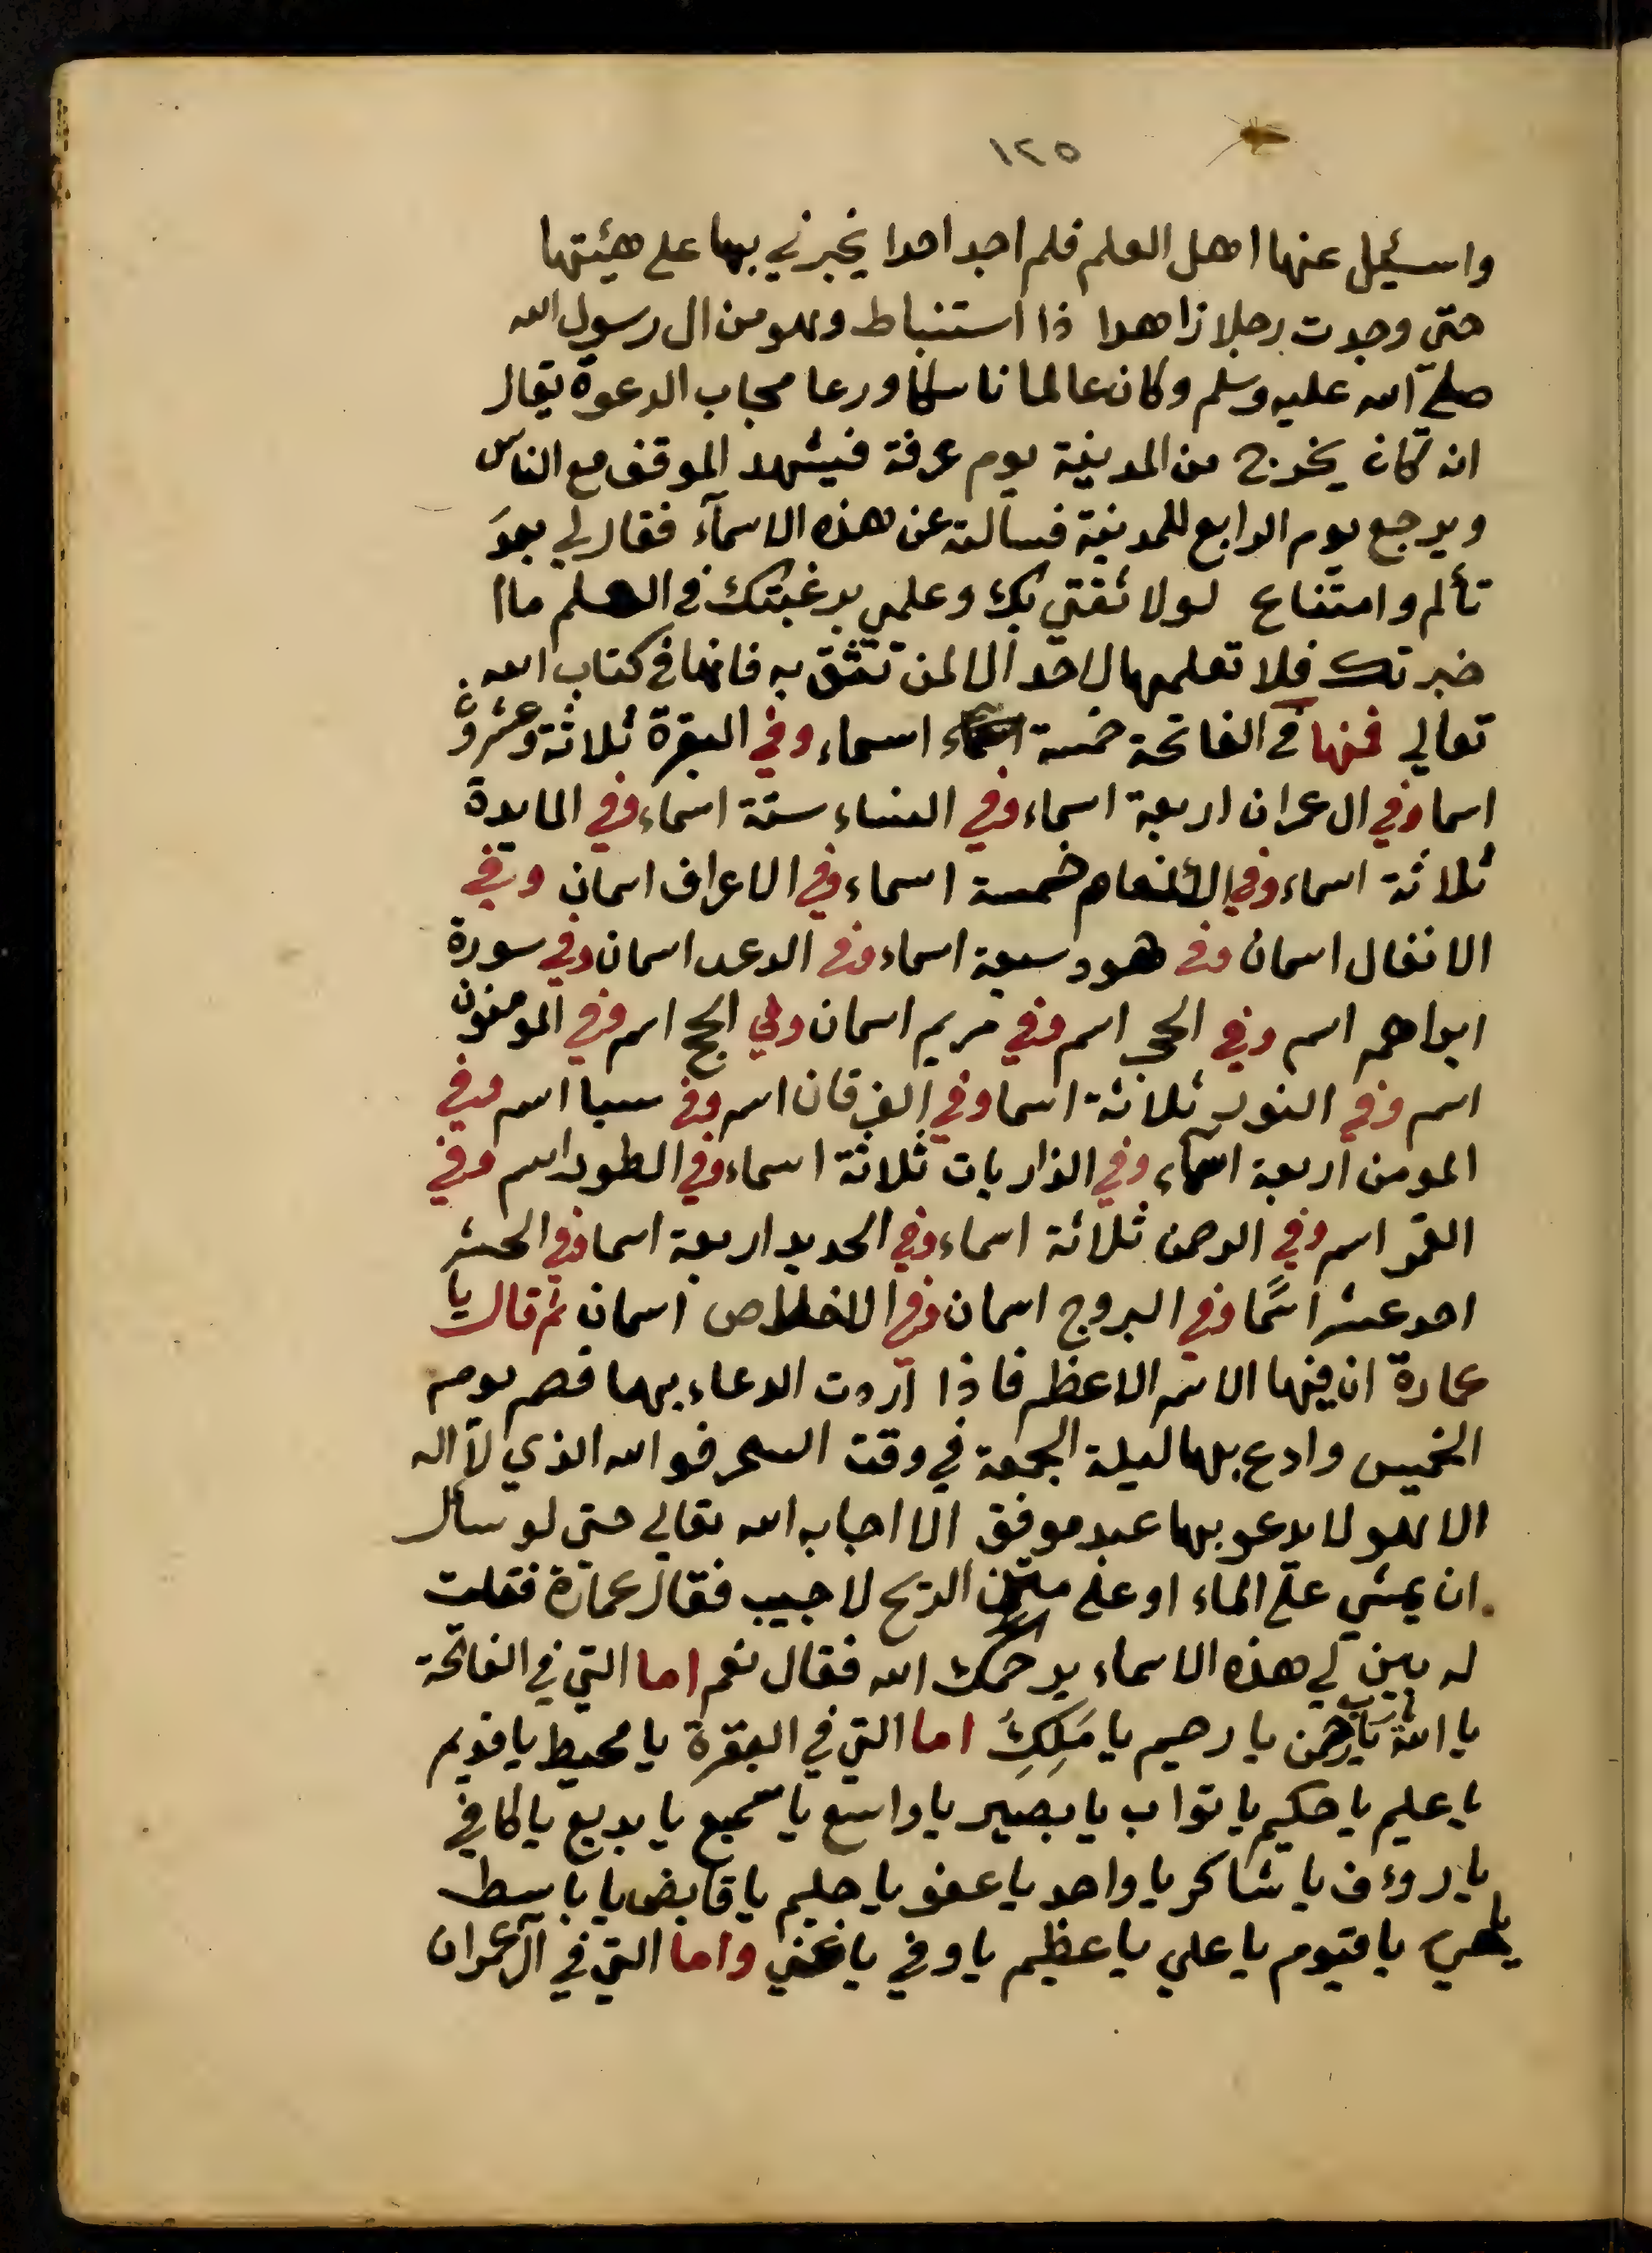 ١٢٥
واسئيل عنها اهل العلم فلم اجد احدا يخبرني بها على هيئتها
حتي وجدت رجلا زاهدا ذا استنباط وهو من ال رسول الله
صلي الله عليه وسلم وكان عالما ناسكا ورعا مجاب الدعوة يقال
انه كان يخرج من المدينة يوم عرفة فيشهد الموقف مع الناس
ويرجع يوم الرابع للمدينة فسالته عن هذه الاسمآء فقال لي بعد
تألم وامتناع لولا ثقتي بك وعلمي برغبتك في العلم ما ا
خبرتك فلا تعلمها لاحد الا لمن تثق به فانها في كتاب الله
تعالي فمنها في الفاتحة خمسة اسماء وفي البقرة ثلاثة وعشرون
اسما وفي ال عمران اربعة اسماء وفي النساء ستة اسماء وفي المايدة
ثلاثة اسماء وفي الانعام خمسة اسماء وفي الاعراف اسمان وفي
الانفال اسمان وفي هود سبعة اسماء وفي الرعد اسمان وفي سورة
ابراهيم اسم وفي الحجر اسم وفي مريم اسمان وفي الحج اسم وفي المومنون
اسم وفي النور ثلاثة اسما وفي الفرقان اسم وفي سبا اسم وفي
المومن اربعة اسماء وفي الذاريات ثلاثة اسماء وفي الطور اسم وفي
القمر اسم وفي الرحمن ثلاثة اسماء وفي الحديد اربعة اسما وفي الحشر
احد عشر اسمًا وفي البروج اسمان وفي الاخلاص اسمان ثم قال يا
عمارة ان فيها الاسم الاعظم فاذا اردت الدعاء بها فصم يوم
الخميس وادع بها ليلة الجمعة في وقت السحر فو الله الذي لا اله
الا هو لا يدعو بها عبد موفق الا اجابه الله تعالي حتى لو سال
ان يمشي علي الماء او علي متن الريح لاجيب فقال عمارة فقلت
له بين لي هذه الاسماء يرحمك الله فقال نعم اما التي في الفاتحة
يا الله يارب يا رحمن يا رحيم يا مَلِكِ اما التي في البقرة يا محيط يا قديم
يا عليم يا حكيم يا تواب يا بصير يا واسع يا سميع يا بديع يا كافي
يا رءوف يا شاكر يا واحد يا عفو يا حليم يا قابض يا باسط
يا حي يا قيوم يا علي يا عظيم يا وفي يا غني واما التي في آل عمران